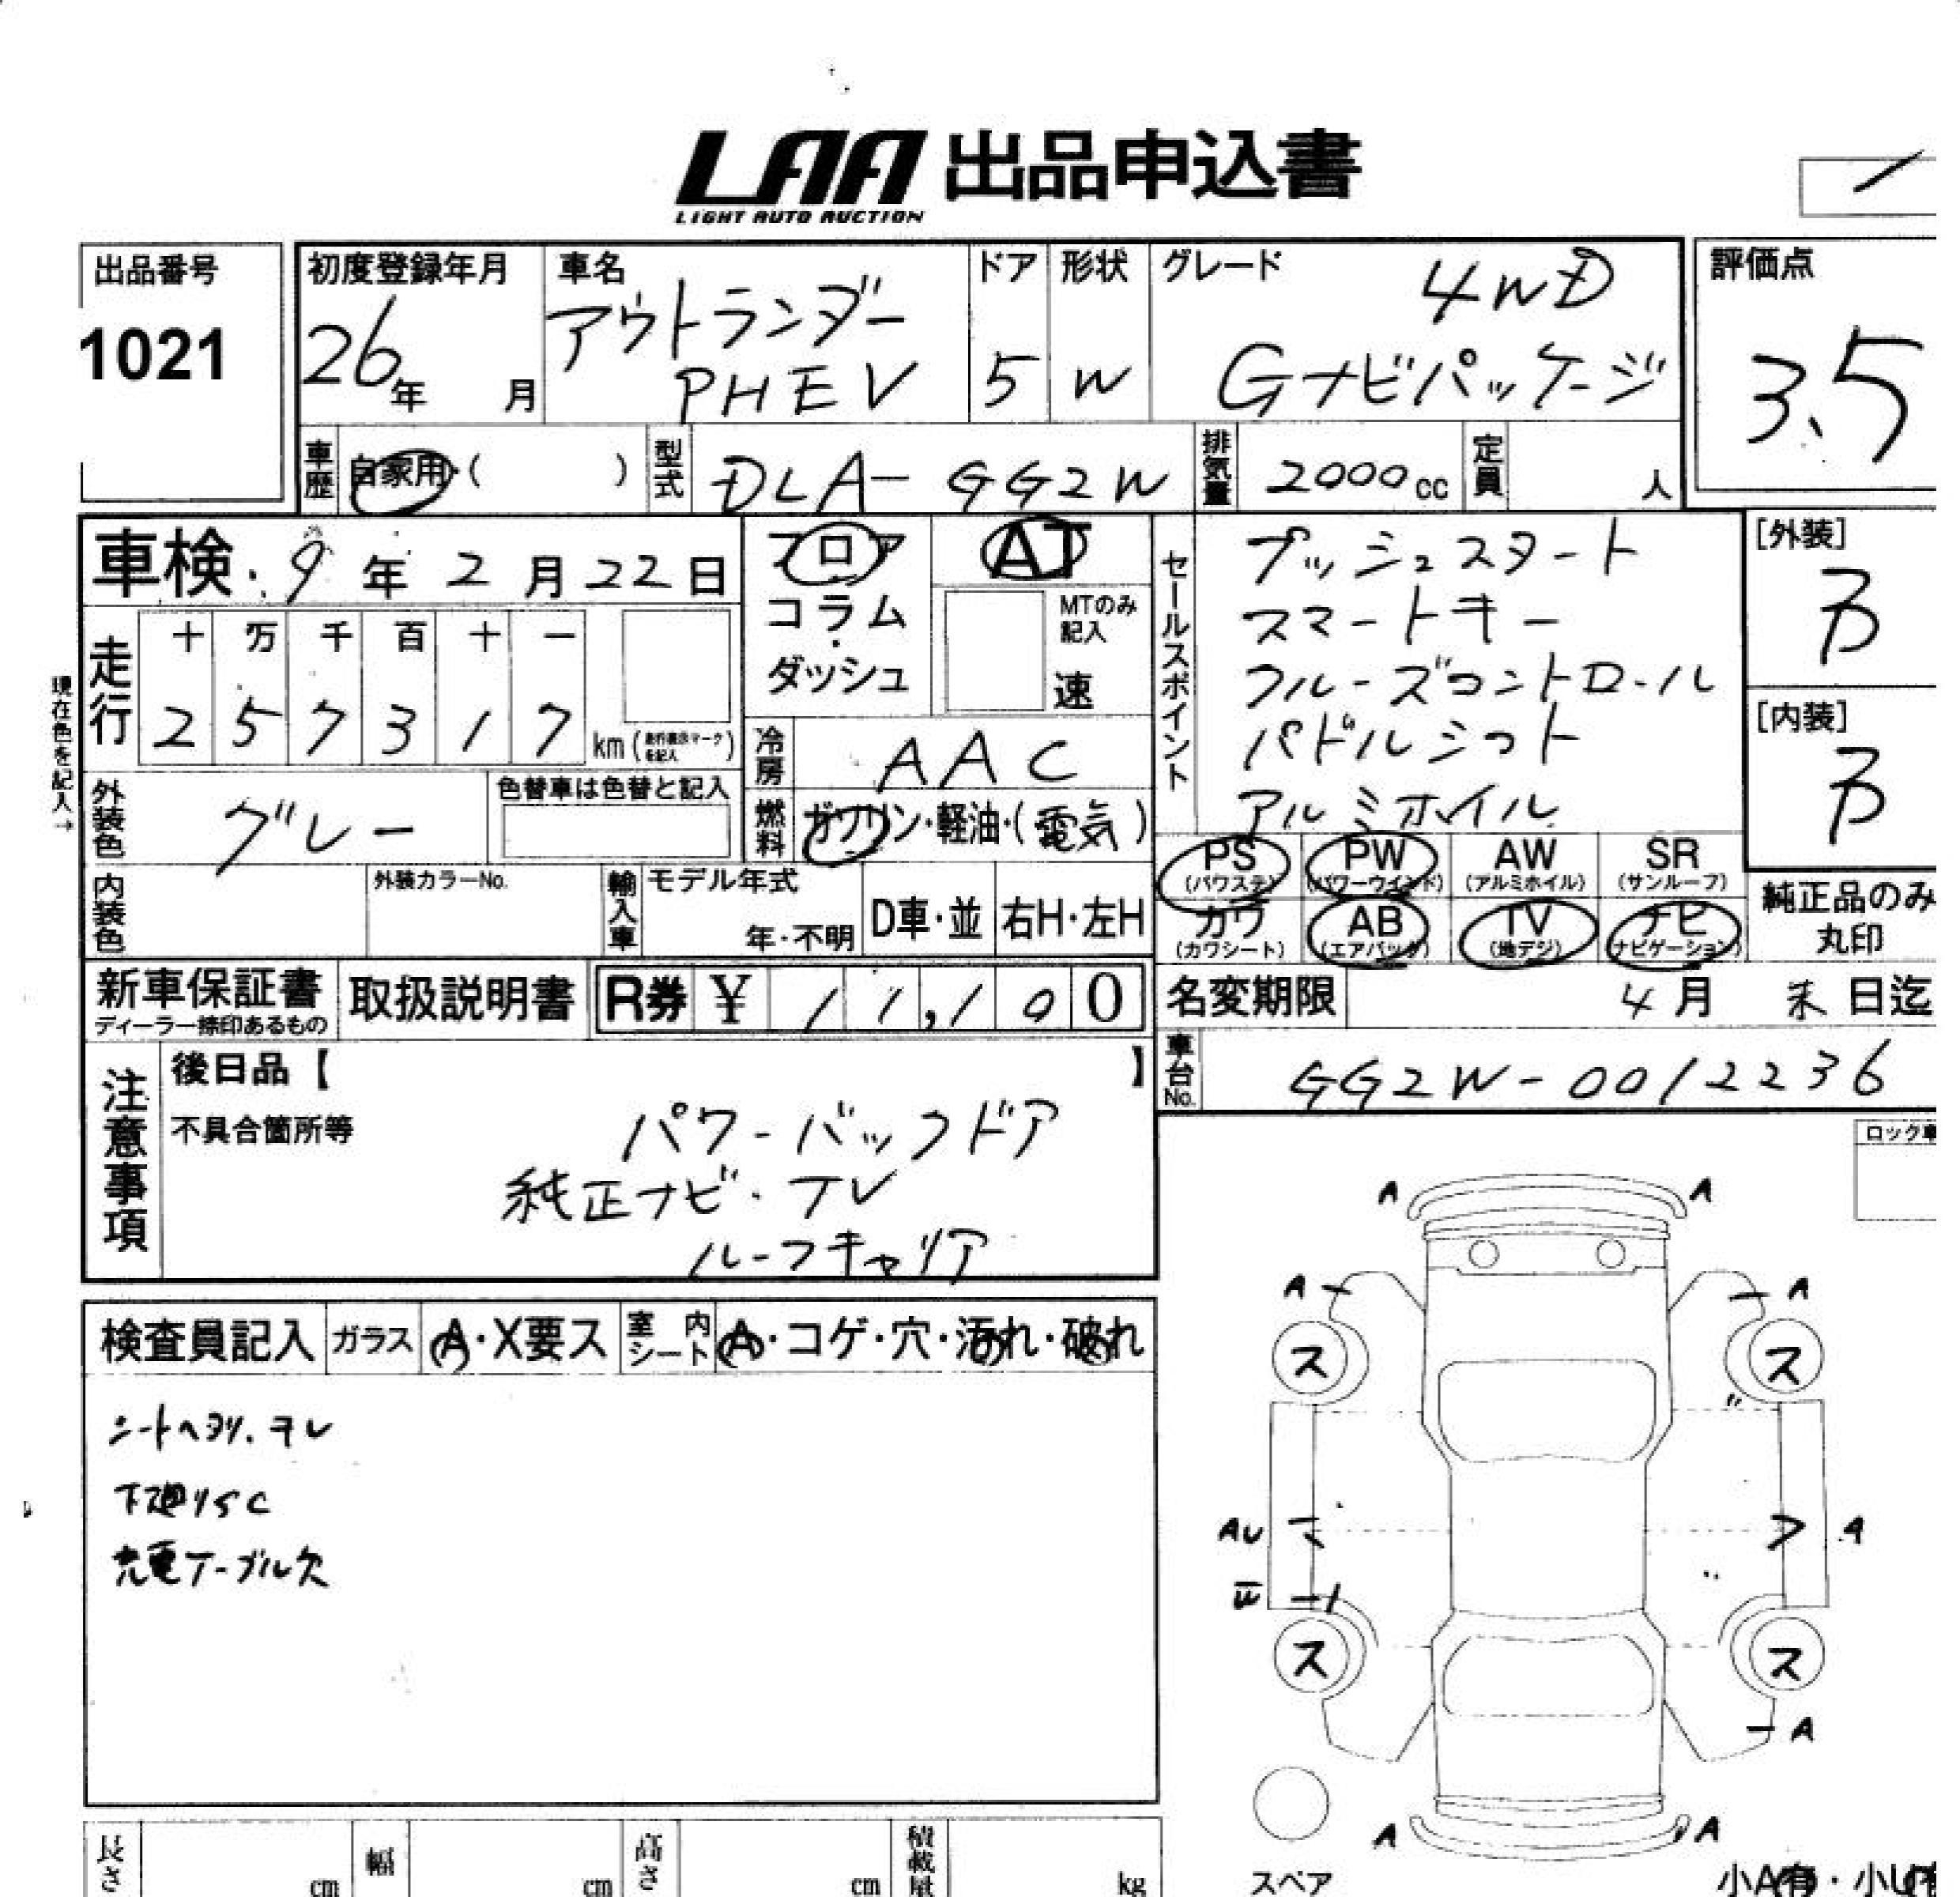 LAA 出品申込書
LIGHT AUTO AUCTION
出品番号
1021
初度登録年月
26年 月
車名
アウトランダー
PHEV
ドア
5
形状
W
グレード
4WD
Gナビパッケージ
評価点
3.5
車歴
自家用・( )
型式
DLA-GG2W
排気量
2000cc
定員
人
車検 9年2月22日
フロア
コラム
・
ダッシュ
AT
MTのみ
記入
速
セールスポイント
プッシュスタート
スマートキー
クルーズコントロール
パドルシフト
アルミホイル
[外装]
B
[内装]
B
現在色を記入→
走行
十 万 千 百 十 一
2 5 7 3 1 7 km
冷房
AAC
外装色
グレー
色替車は色替と記入
燃料
ガソリン・軽油・(電気)
PS
(パワステ)
PW
(パワーウインド)
AW
(アルミホイル)
SR
(サンルーフ)
カワ
(カワシート)
AB
(エアバッグ)
TV
(地デジ)
ナビ
(ナビゲーション)
純正品のみ
丸印
内装色
外装カラーNo.
輸入車
モデル年式
年・不明
D車・並
右H・左H
新車保証書
ディーラー捺印あるもの
取扱説明書
R券 ¥ 11,100
名変期限
4月 末日迄
車台No.
GG2W-0012236
注意事項
後日品【 】
不具合箇所等
パワーバックドア
純正ナビ・TV
ルーフキャリア
ロック車
検査員記入
ガラス
A・X要ス
室内
シート
A・コゲ・穴・汚れ・破れ
シートヘタリ.ヨレ
下廻りSC
充電ケーブル欠
A A
A A
ス ス
AU A
ス ス
A
A A
スペア
小A有・小U有
長さ
cm
幅
cm
高さ
cm
積載量
kg